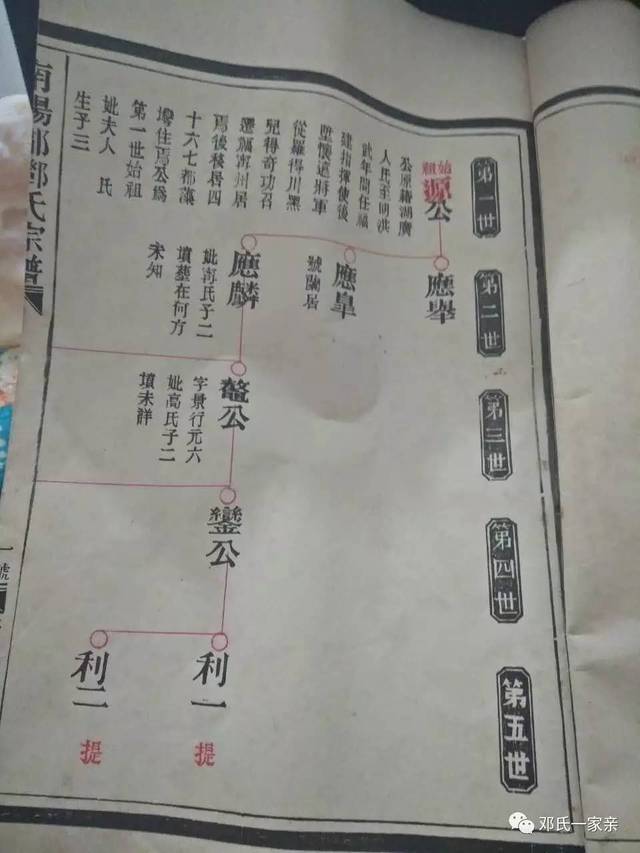 第一世
第二世
第三世
第四世
第五世
始祖
源公
公原籍湖廣
人氏至洪
武年間任福
建指揮使後
陞懷遠將軍
從羅得川黑
兒得奇功召
遷甌甯川居
焉後移居四
十六七都藻
墩住焉公為
第一世始祖
妣夫人 氏
生子三
應舉
應皐
號蘭居
應麟
妣海氏子二
墳墓在何方
未知
鰲公
字景行元六
妣高氏子二
墳未詳
鑾公
利一
提
利二
提
南陽郡鄧氏宗譜
一號
邓氏一家亲